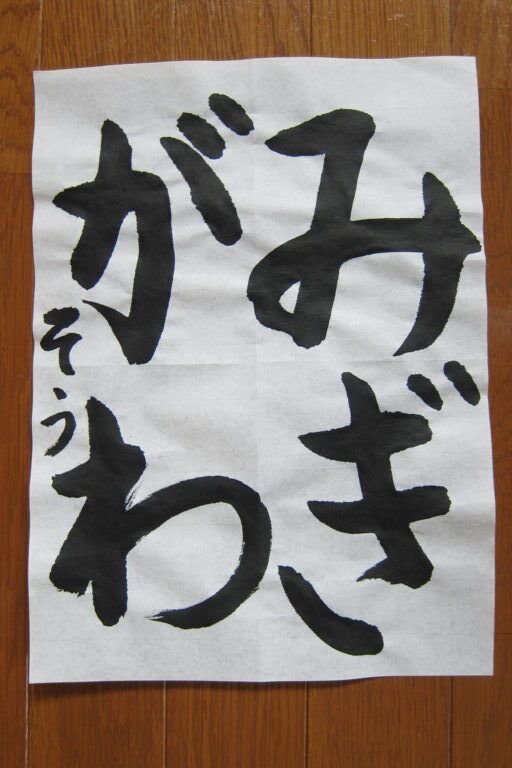 みぎ
がわ
そう